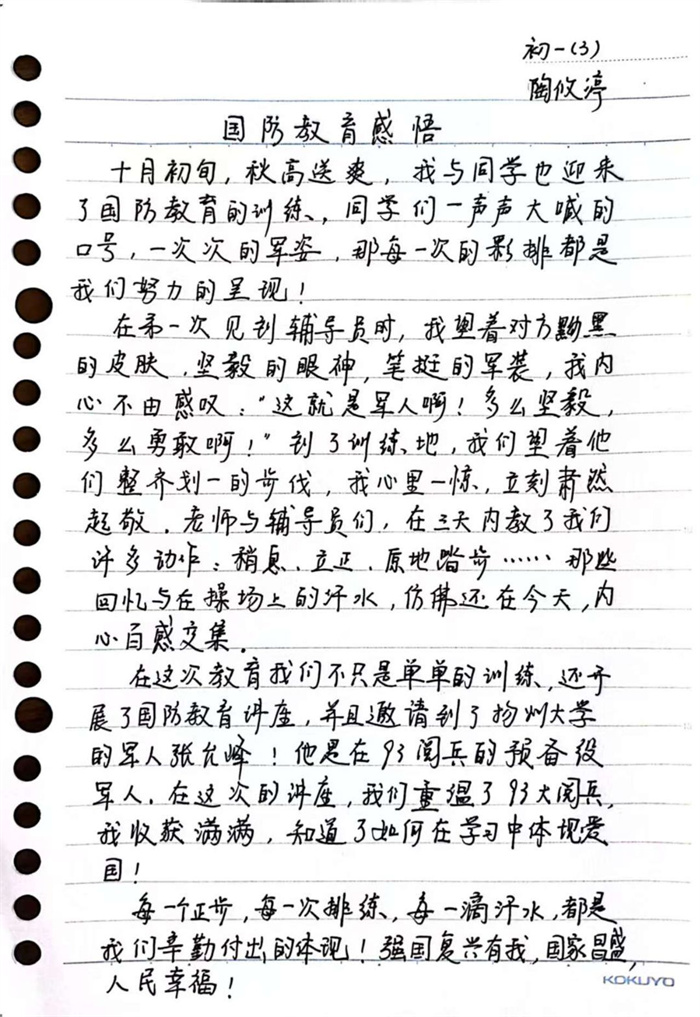 初一(3)
陶攸渟
国防教育感悟
十月初旬，秋高送爽，我与同学也迎来
了国防教育的训练，同学们一声声大喊的
口号，一次次的军姿，那每一次的彩排都是
我们努力的呈现！
在第一次见到辅导员时，我望着对方黝黑
的皮肤，坚毅的眼神，笔挺的军装，我内
心不由感叹："这就是军人啊！多么坚毅，
多么勇敢啊！"到了训练地，我们望着他
们整齐划一的步伐，我心里一惊，立刻肃然
起敬．老师与辅导员们，在三天内教了我们
许多动作：稍息、立正、原地踏步……那些
回忆与在操场上的汗水，仿佛还在今天，内
心百感交集．
在这次教育我们不只是单单的训练，还开
展了国防教育讲座，并且邀请到了扬州大学
的军人张允峰！他是在93阅兵的预备役
军人．在这次的讲座，我们重温了93大阅兵，
我收获满满，知道了如何在学习中体现爱
国！
每一个正步，每一次排练，每一滴汗水，都是
我们辛勤付出的体现！强国复兴有我，国家昌盛，
人民幸福！
KOKUYO